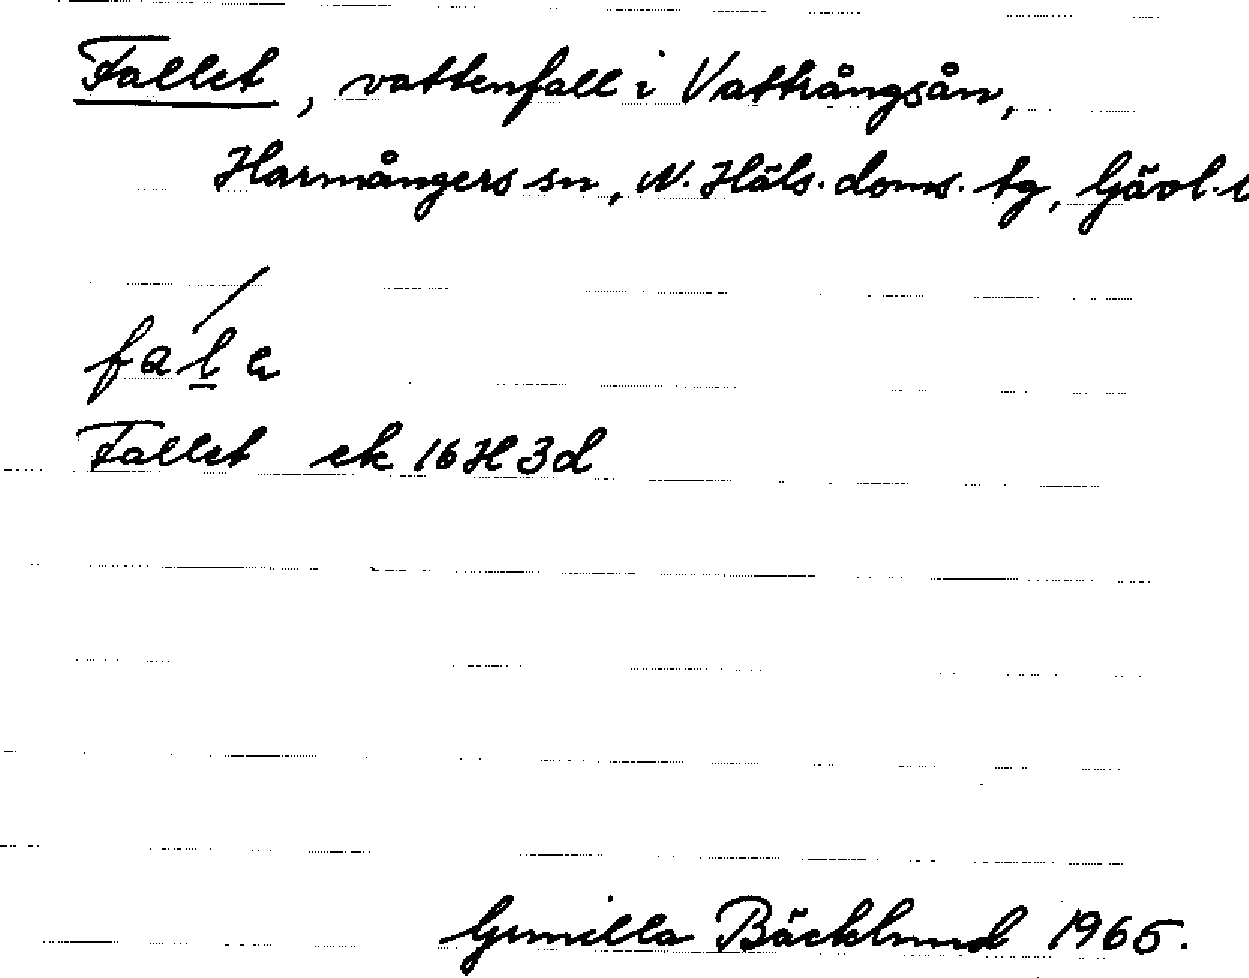 Fallet, vattenfall i Vattrångsån,
Harmångers sn, N. Häls. doms. tg, Gävl. l
fal̲a
Fallet ek 16H 3d
Gunilla Bäcklund 1965.